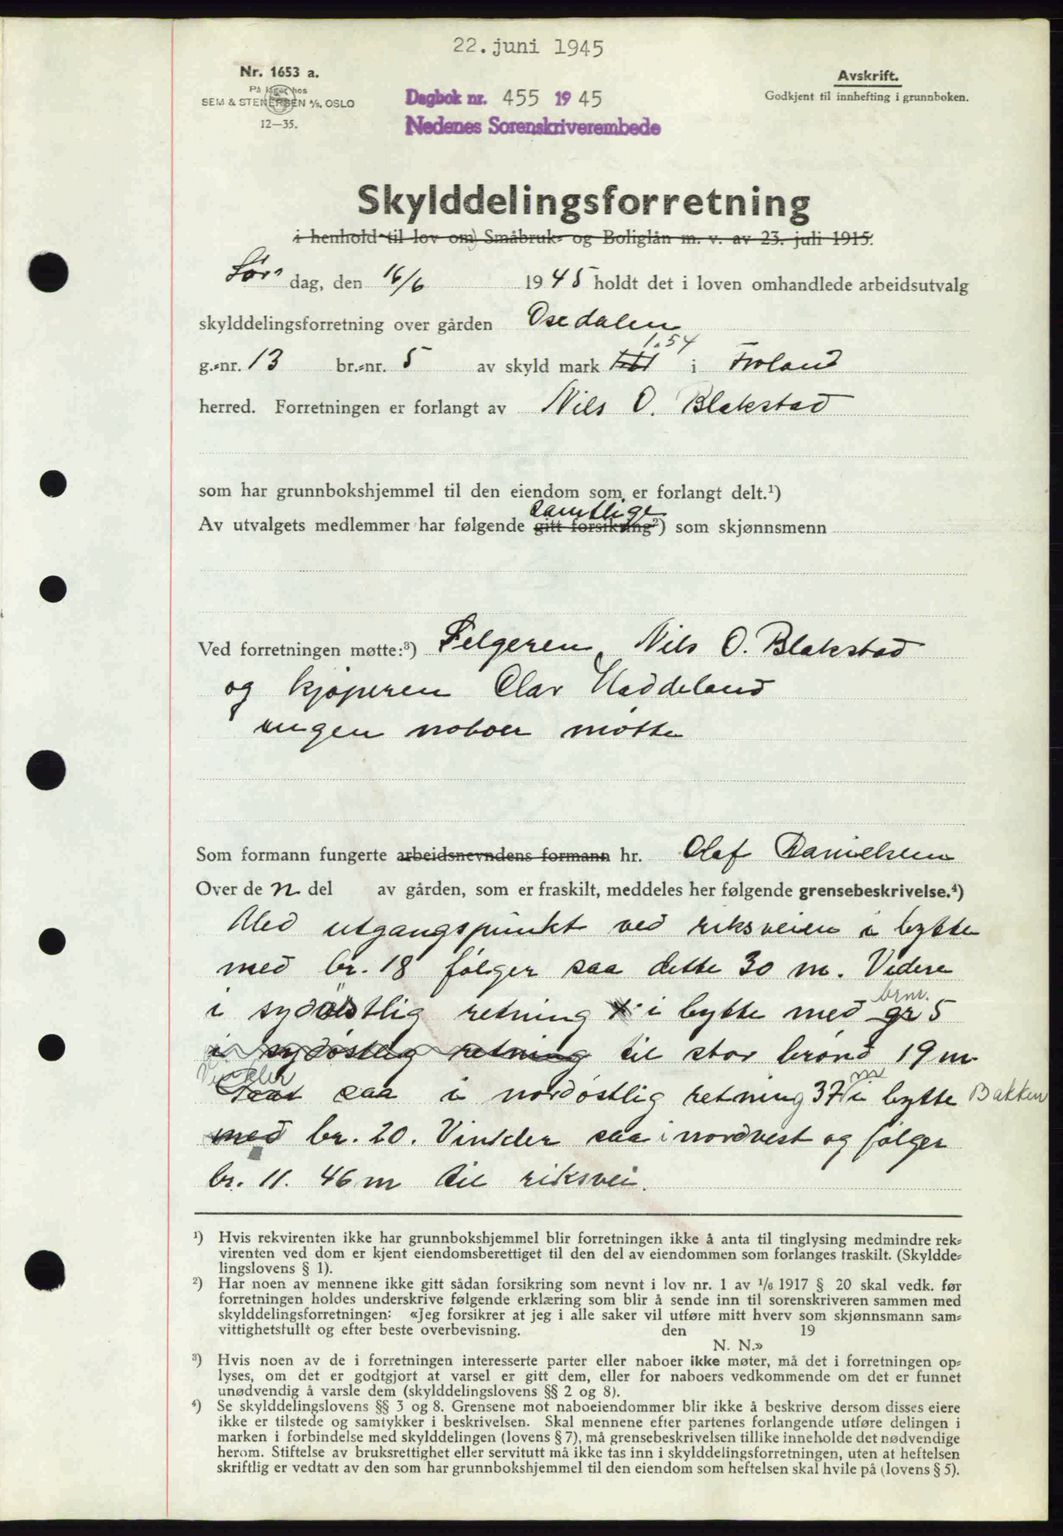 22. juni 1945
Nr. 1653 a.
På lager hos
SEM & STENERSEN A/S, OSLO
12—35.
Dagbok nr. 455 1945
Nedenes Sorenskriverembede
Avskrift.
Godkjent til innhefting i grunnboken.
Skylddelingsforretning
i henhold til lov om) Småbruk- og Boliglån m. v. av 23. juli 1915.
Lør dag, den 16/6 1945 holdt det i loven omhandlede arbeidsutvalg
skylddelingsforretning over gården Osedalen
1.54
g.-nr. 13 br.-nr. 5 av skyld mark i Froland
herred. Forretningen er forlangt av Nils O. Blakstad
som har grunnbokshjemmel til den eiendom som er forlangt delt.¹)
samtlige
Av utvalgets medlemmer har følgende gitt forsikring²) som skjønnsmenn
Ved forretningen møtte:³) Selgeren, Nils O. Blakstad
og kjøperen Olav Haddeland
ingen naboer møtte
Som formann fungerte arbeidsnevndens formann hr. Olaf Danielsen
Over de n del av gården, som er fraskilt, meddeles her følgende grensebeskrivelse.⁴)
Med utgangspunkt ved riksveien i bytte
med br. 18 følger saa dette 30 m. Videre
i sydøstlig retning i bytte med gr brnr. 5
i sydøstlig retning til stor brønd 19 m
Vinkler saa i nordøstlig retning 37 m i bytte Bakken
med br. 20. Vinkler saa i nordvest og følger
br. 11. 46 m til riksvei.
¹) Hvis rekvirenten ikke har grunnbokshjemmel blir forretningen ikke å anta til tinglysing medmindre rek-
virenten ved dom er kjent eiendomsberettiget til den del av eiendommen som forlanges fraskilt. (Skyldde-
lingslovens § 1).
²) Har noen av mennene ikke gitt sådan forsikring som nevnt i lov nr. 1 av 1/6 1917 § 20 skal vedk. før
forretningen holdes underskrive følgende erklæring som blir å sende inn til sorenskriveren sammen med
skylddelingsforretningen: «Jeg forsikrer at jeg i alle saker vil utføre mitt hverv som skjønnsmann sam-
vittighetsfullt og efter beste overbevisning. den 19
N. N.»
³) Hvis noen av de i forretningen interesserte parter eller naboer ikke møter, må det i forretningen op-
lyses, om det er godtgjort at varsel er gitt dem, eller for naboers vedkommende om det er funnet
unødvendig å varsle dem (skylddelingslovens §§ 2 og 8).
⁴) Se skylddelingslovens §§ 3 og 8. Grensene mot naboeiendommer blir ikke å beskrive dersom disses eiere
ikke er tilstede og samtykker i beskrivelsen. Skal mennene efter partenes forlangende utføre delingen i
marken i forbindelse med skylddelingen (lovens § 7), må grensebeskrivelsen tillike inneholde det nødvendige
herom. Stiftelse av bruksrettighet eller servitutt må ikke tas inn i skylddelingsforretningen, uten at heftelsen
skriftlig er vedtatt av den som har grunnbokshjemmel til den eiendom som heftelsen skal hvile på (lovens § 5).